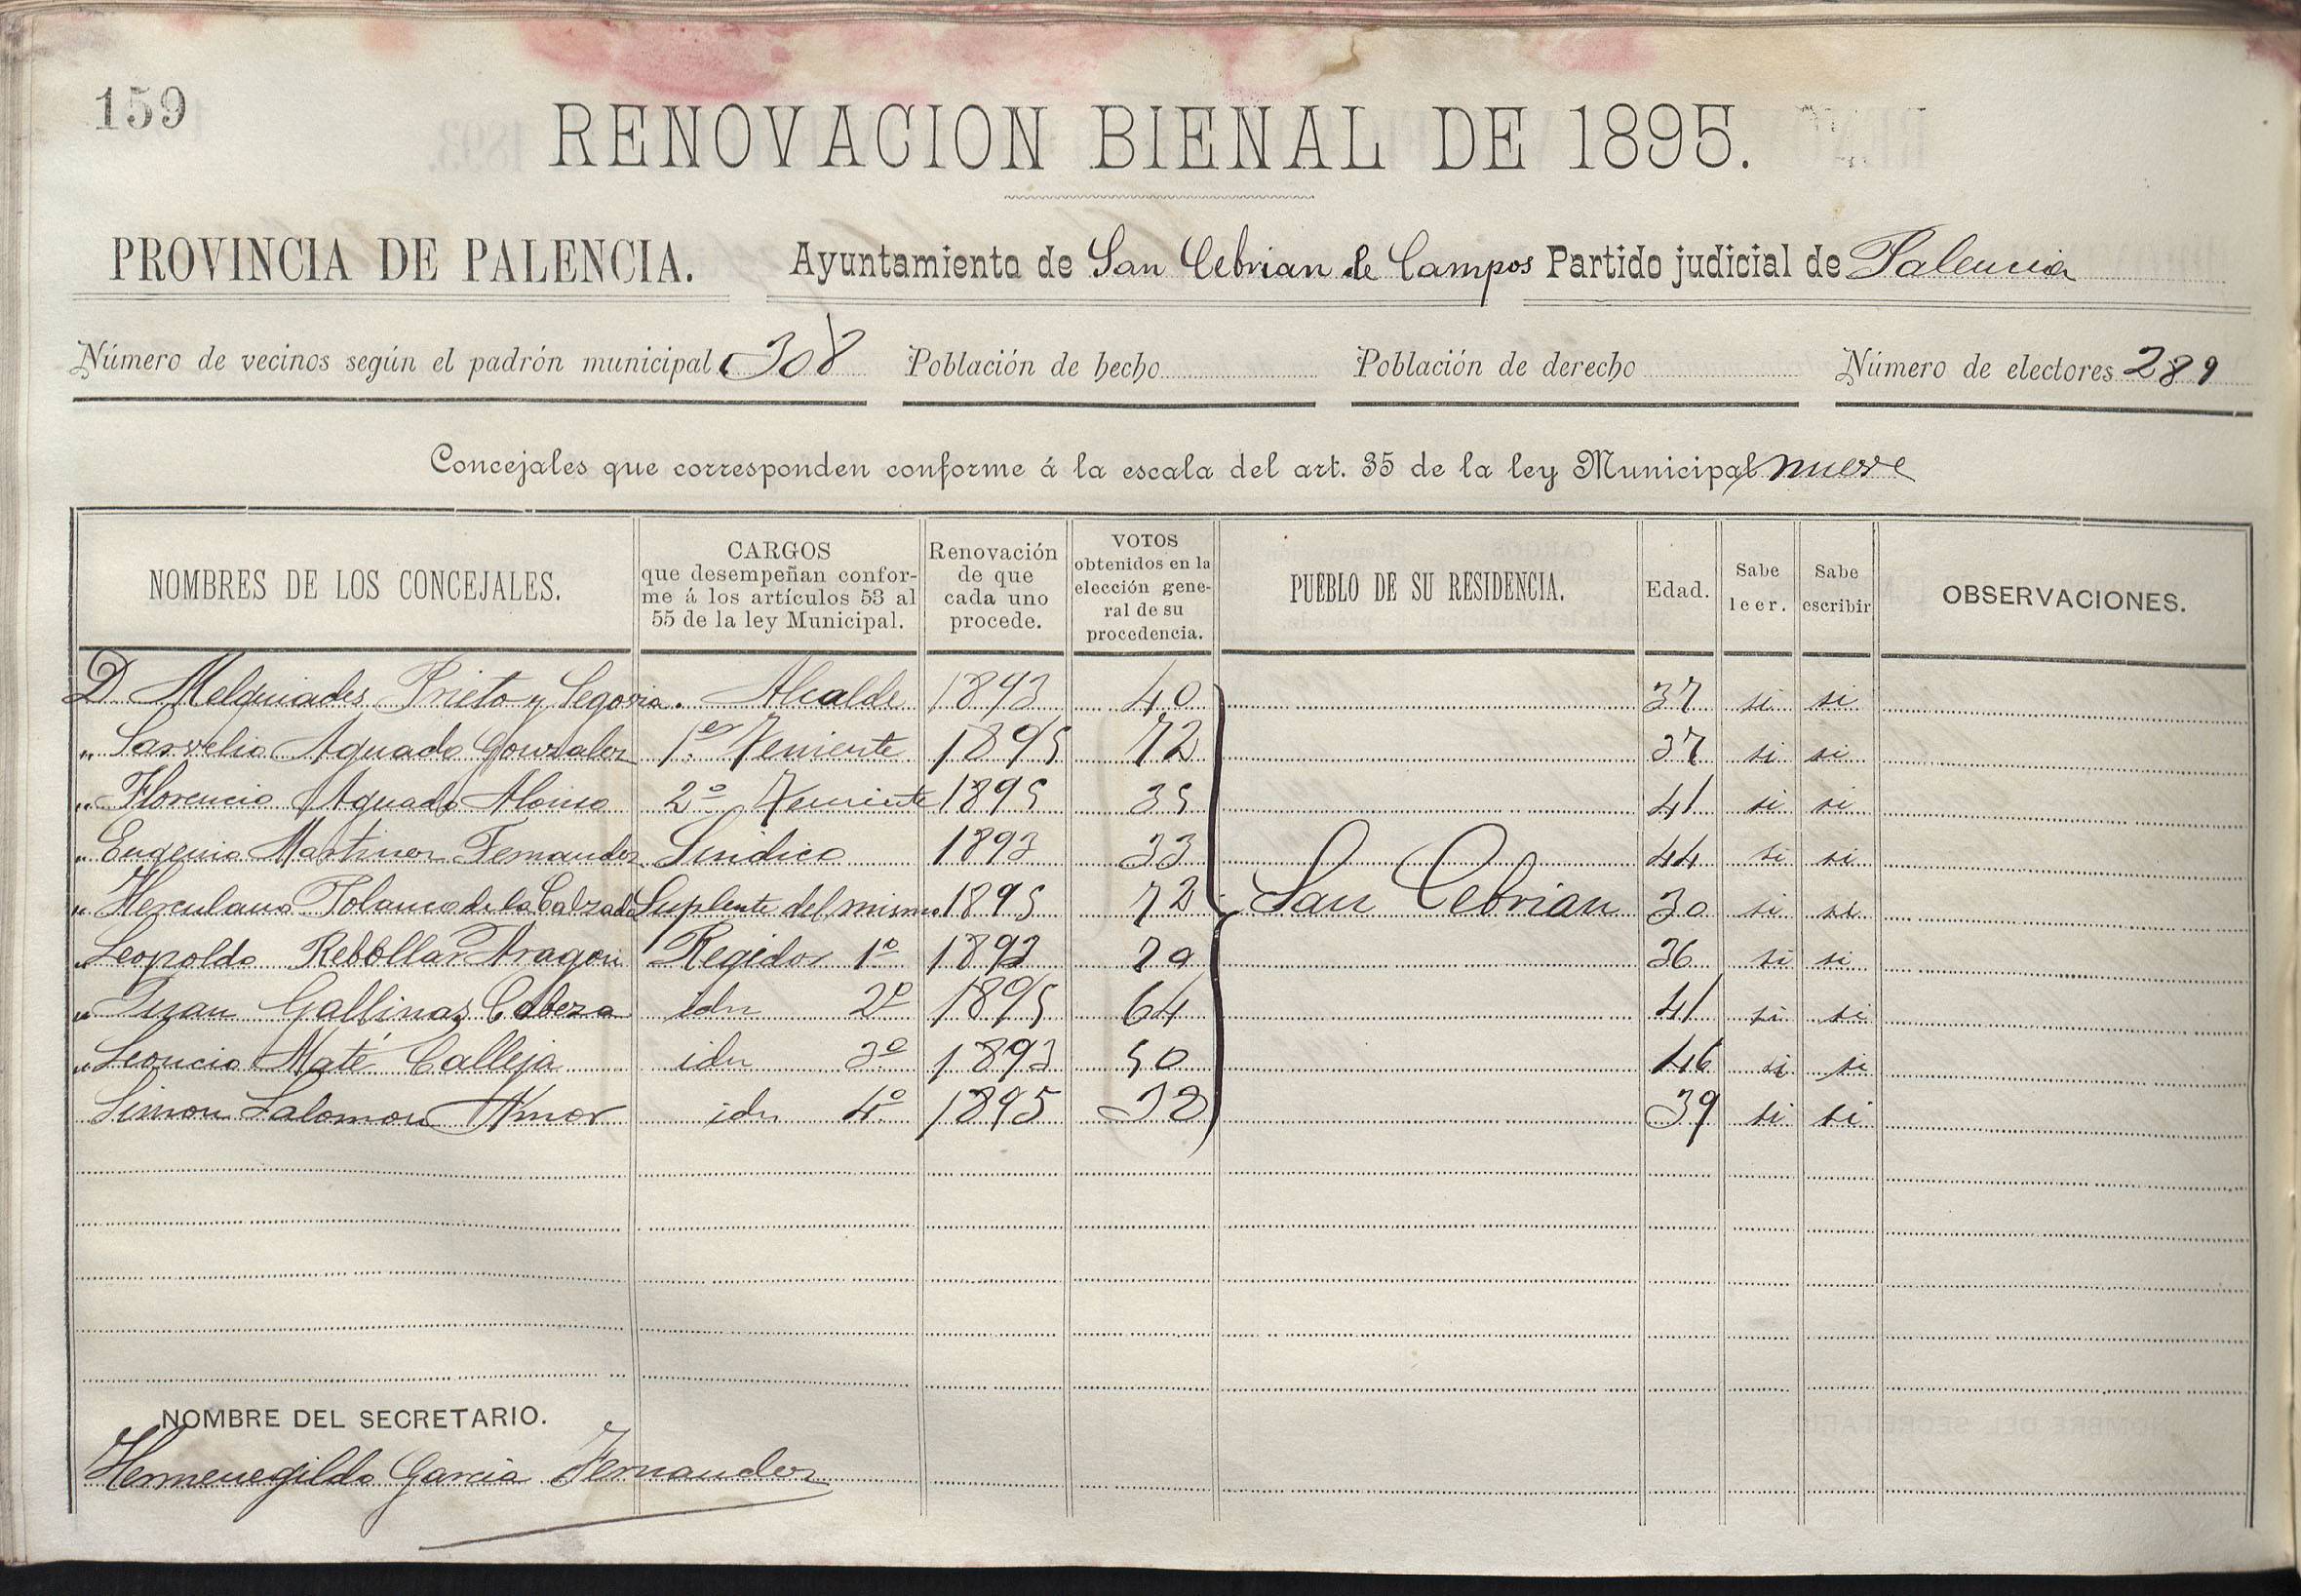 159
RENOVACION BIENAL DE 1895.
PROVINCIA DE PALENCIA. Ayuntamiento de San Cebrian de Campos Partido judicial de Palencia
Número de vecinos según el padrón municipal 308 Población de hecho Población de derecho Número de electores 289
Concejales que corresponden conforme á la escala del art. 35 de la ley Municipal nueve
NOMBRES DE LOS CONCEJALES. CARGOS que desempeñan conforme á los artículos 53 al 55 de la ley Municipal. Renovación de que cada uno procede. VOTOS obtenidos en la elección general de su procedencia. PUEBLO DE SU RESIDENCIA. Edad. Sabe leer. Sabe escribir OBSERVACIONES.
D. Melquiades Prieto y Segovia. Alcalde 1893 40 37 si si
" Aguado Gonzalez 1.er Teniente 1895 72 37 si si
" Florencio Aguado Alonso 2º Teniente 1895 35 41 si si
" Eugenio Martinez Fernandez Sindico 1893 33 44 si si
" Herculano Polanco de la Calzada Suplente del mismo 1895 72 San Cebrian 30 si si
" Leopoldo Rebollar Aragon Regidor 1º 1893 36 si si
" Juan Gallinas Cabeza idn 2º 1895 64 41 si si
" Leoncio Maté Calleja idn 3º 1893 50 46 si si
Simon Salomon Amor idn 4º 1895 38 39 si si
NOMBRE DEL SECRETARIO.
Hermenegildo Garcia Fernandez